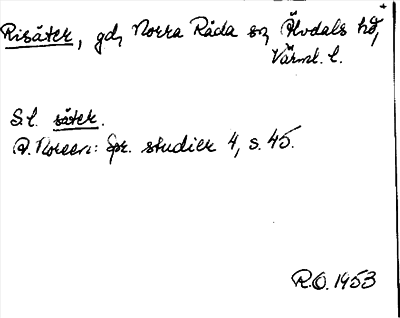 Risäter, gd, Norra Råda sn, Älvdals hd,
Värml. l.
S.l. säter.
A. Noreen: Spr. studier 4, s. 45.
R.O. 1953